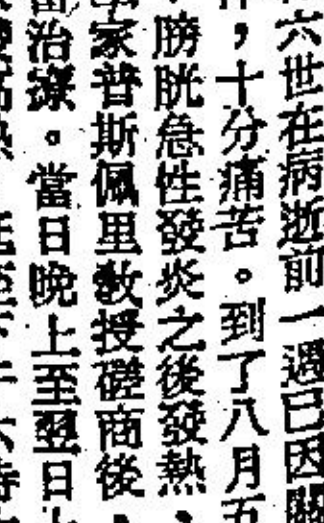 六世在病逝前一週已因關
，十分痛苦。到了八月五
膀胱急性發炎之後發熱，
家普斯佩里教授磋商後，
治療。當日晚上至翌日上